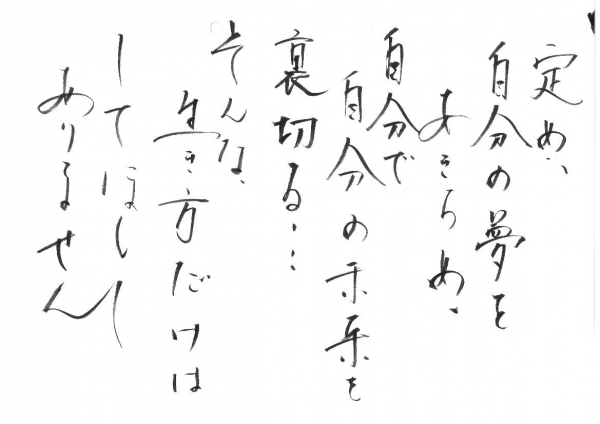 定め、
自分の夢を
あきらめ、
自分で
自分の未来を
裏切る…
そんな
生き方だけは
してほしく
ありません